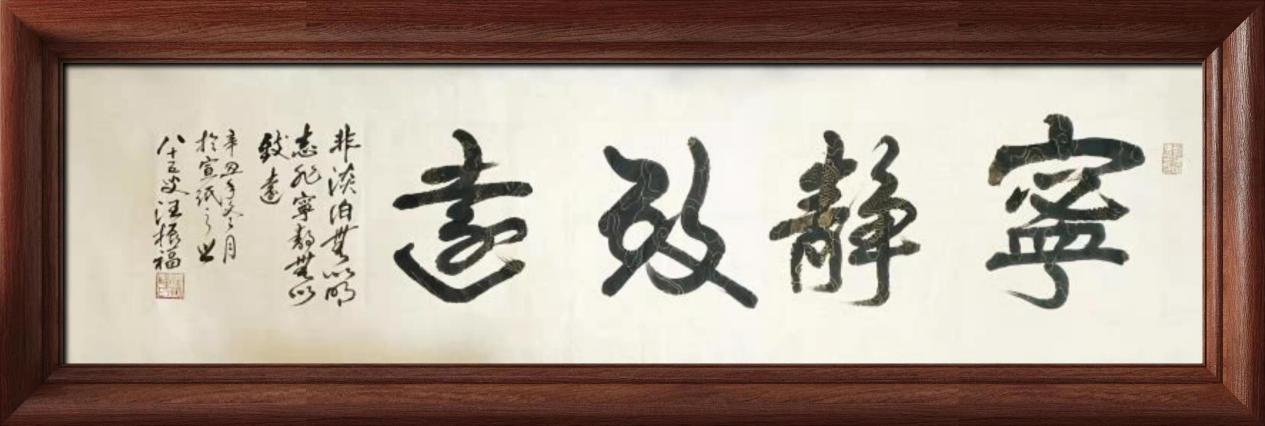 寧靜致遠
非淡泊無以明
志非寧靜無以
致遠
辛丑年冬月
於宣紙之
八十五叟汪振福